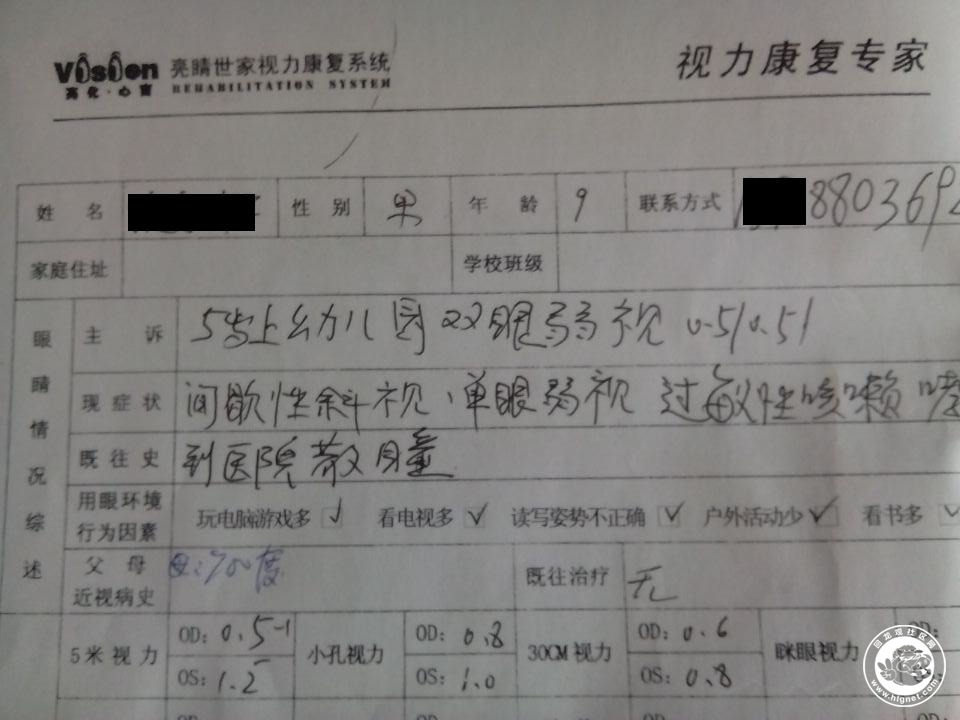 Vision 亮睛世家视力康复系统
亮化·心窗 REHABILITATION SYSTEM
视力康复专家
姓 名 性 别 男 年 龄 9 联系方式 880369
家庭住址 学校班级
眼睛情况综述
主 诉 5岁上幼儿园双眼弱视 0.5/0.51
现症状 间歇性斜视、单眼弱视 过敏性咳嗽
既往史 到医院散瞳
用眼环境行为因素 玩电脑游戏多 ✓ 看电视多 ✓ 读写姿势不正确 ✓ 户外活动少 ✓ 看书多 ✓
父 母 近视病史 母:700度 既往治疗 无
5米视力 OD: 0.5-1 小孔视力 OD: 0.8 30CM视力 OD: 0.6 眯眼视力 OD:
OS: 1.2 OS: 1.0 OS: 0.8
OD: OD:
回龙观社区网
www.hlgnet.com